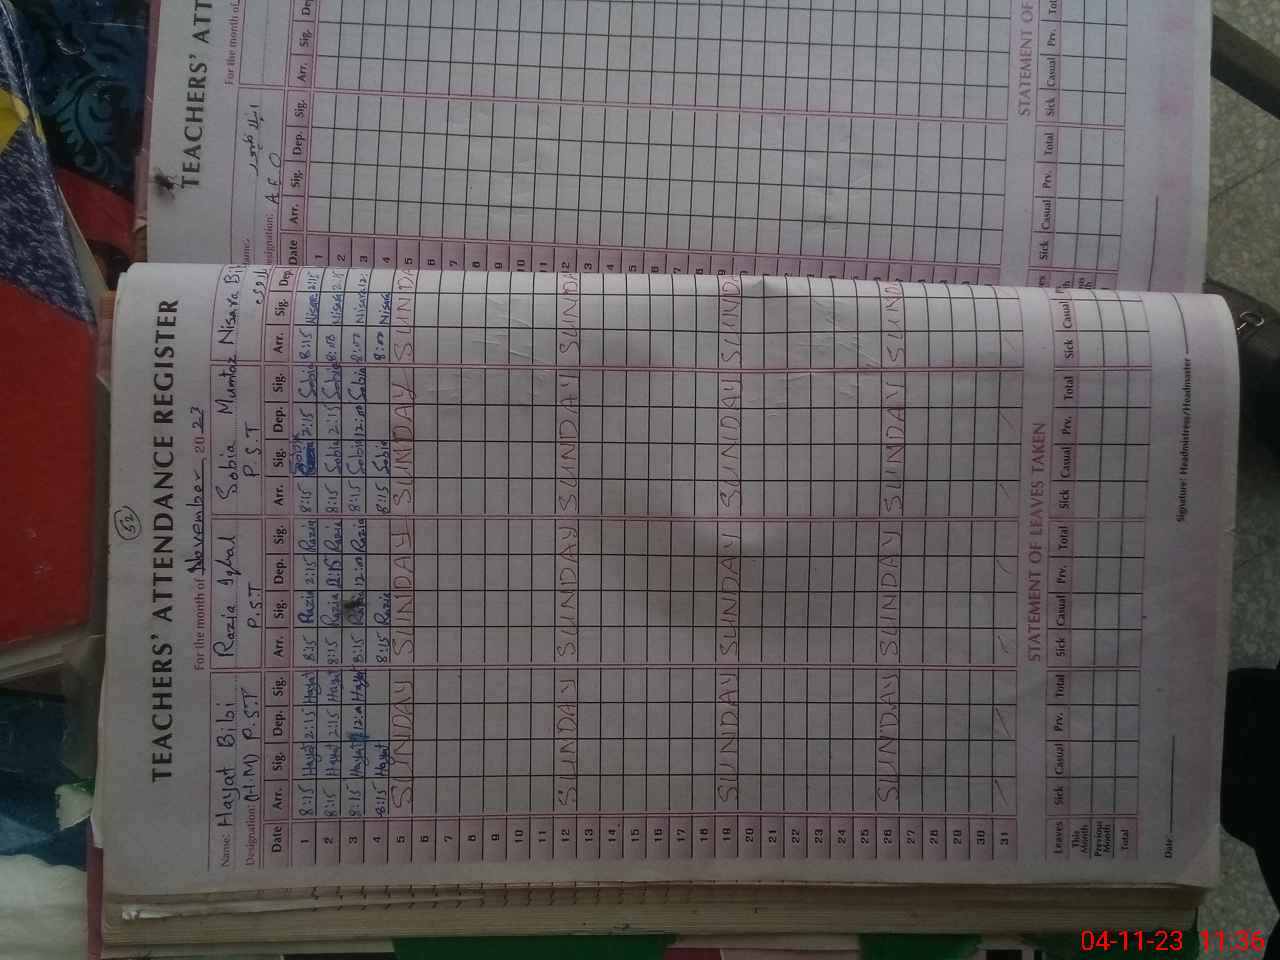 52
TEACHERS' ATTENDANCE REGISTER
For the month of November 2023
Name: Hayat Bibi Razia Iqbal Sobia Mumtaz Nisara Bi
Designation: (H.M) P.S.T P.S.T P.S.T
Date Arr. Sig. Dep. Sig. Arr. Sig. Dep. Sig. Arr. Sig. Dep. Sig. Arr. Sig. Dep.
1 8:15 Hayat 2:15 Hayat 8:15 Razia 2:15 Razia 8:15 Sobia 2:15 Sobia 8:15 Nisara 2:15
2 8:15 Hayat 2:15 Hayat 8:15 Razia 2:15 Razia 8:15 Sobia 2:15 Sobia 8:10 Nisara 2:15
3 8:15 Hayat 12:00 Hayat 8:15 Razia 12:00 Razia 8:15 Sobia 12:00 Sobia 8:07 Nisara 12:
4 8:15 Hayat 8:15 Razia 8:15 Sobia 8:07 Nisara
5 SUNDAY SUNDAY SUNDAY SUNDA
6
7
8
9
10
11
12 SUNDAY SUNDAY SUNDAY SUNDA
13
14
15
16
17
18
19 SUNDAY SUNDAY SUNDAY SUND
20
21
22
23
24
25
26 SUNDAY SUNDAY SUNDAY SUND
27
28
29
30
31
STATEMENT OF LEAVES TAKEN
Leaves Sick Casual Prv. Total Sick Casual Prv. Total Sick Casual Prv. Total Sick Casual
This Month
Previous Month
Total
Date: Signature: Headmistress/Headmaster
TEACHERS' ATT
For the month of
Name:
Designation: A.E.O
Date Arr. Sig. Dep. Sig. Arr. Sig. De
1
2
3
4
5
6
7
8
9
10
11
12
13
14
15
16
17
18
STATEMENT OF
Sick Casual Prv. Total Sick Casual Prv. Tot
04-11-23 11:36